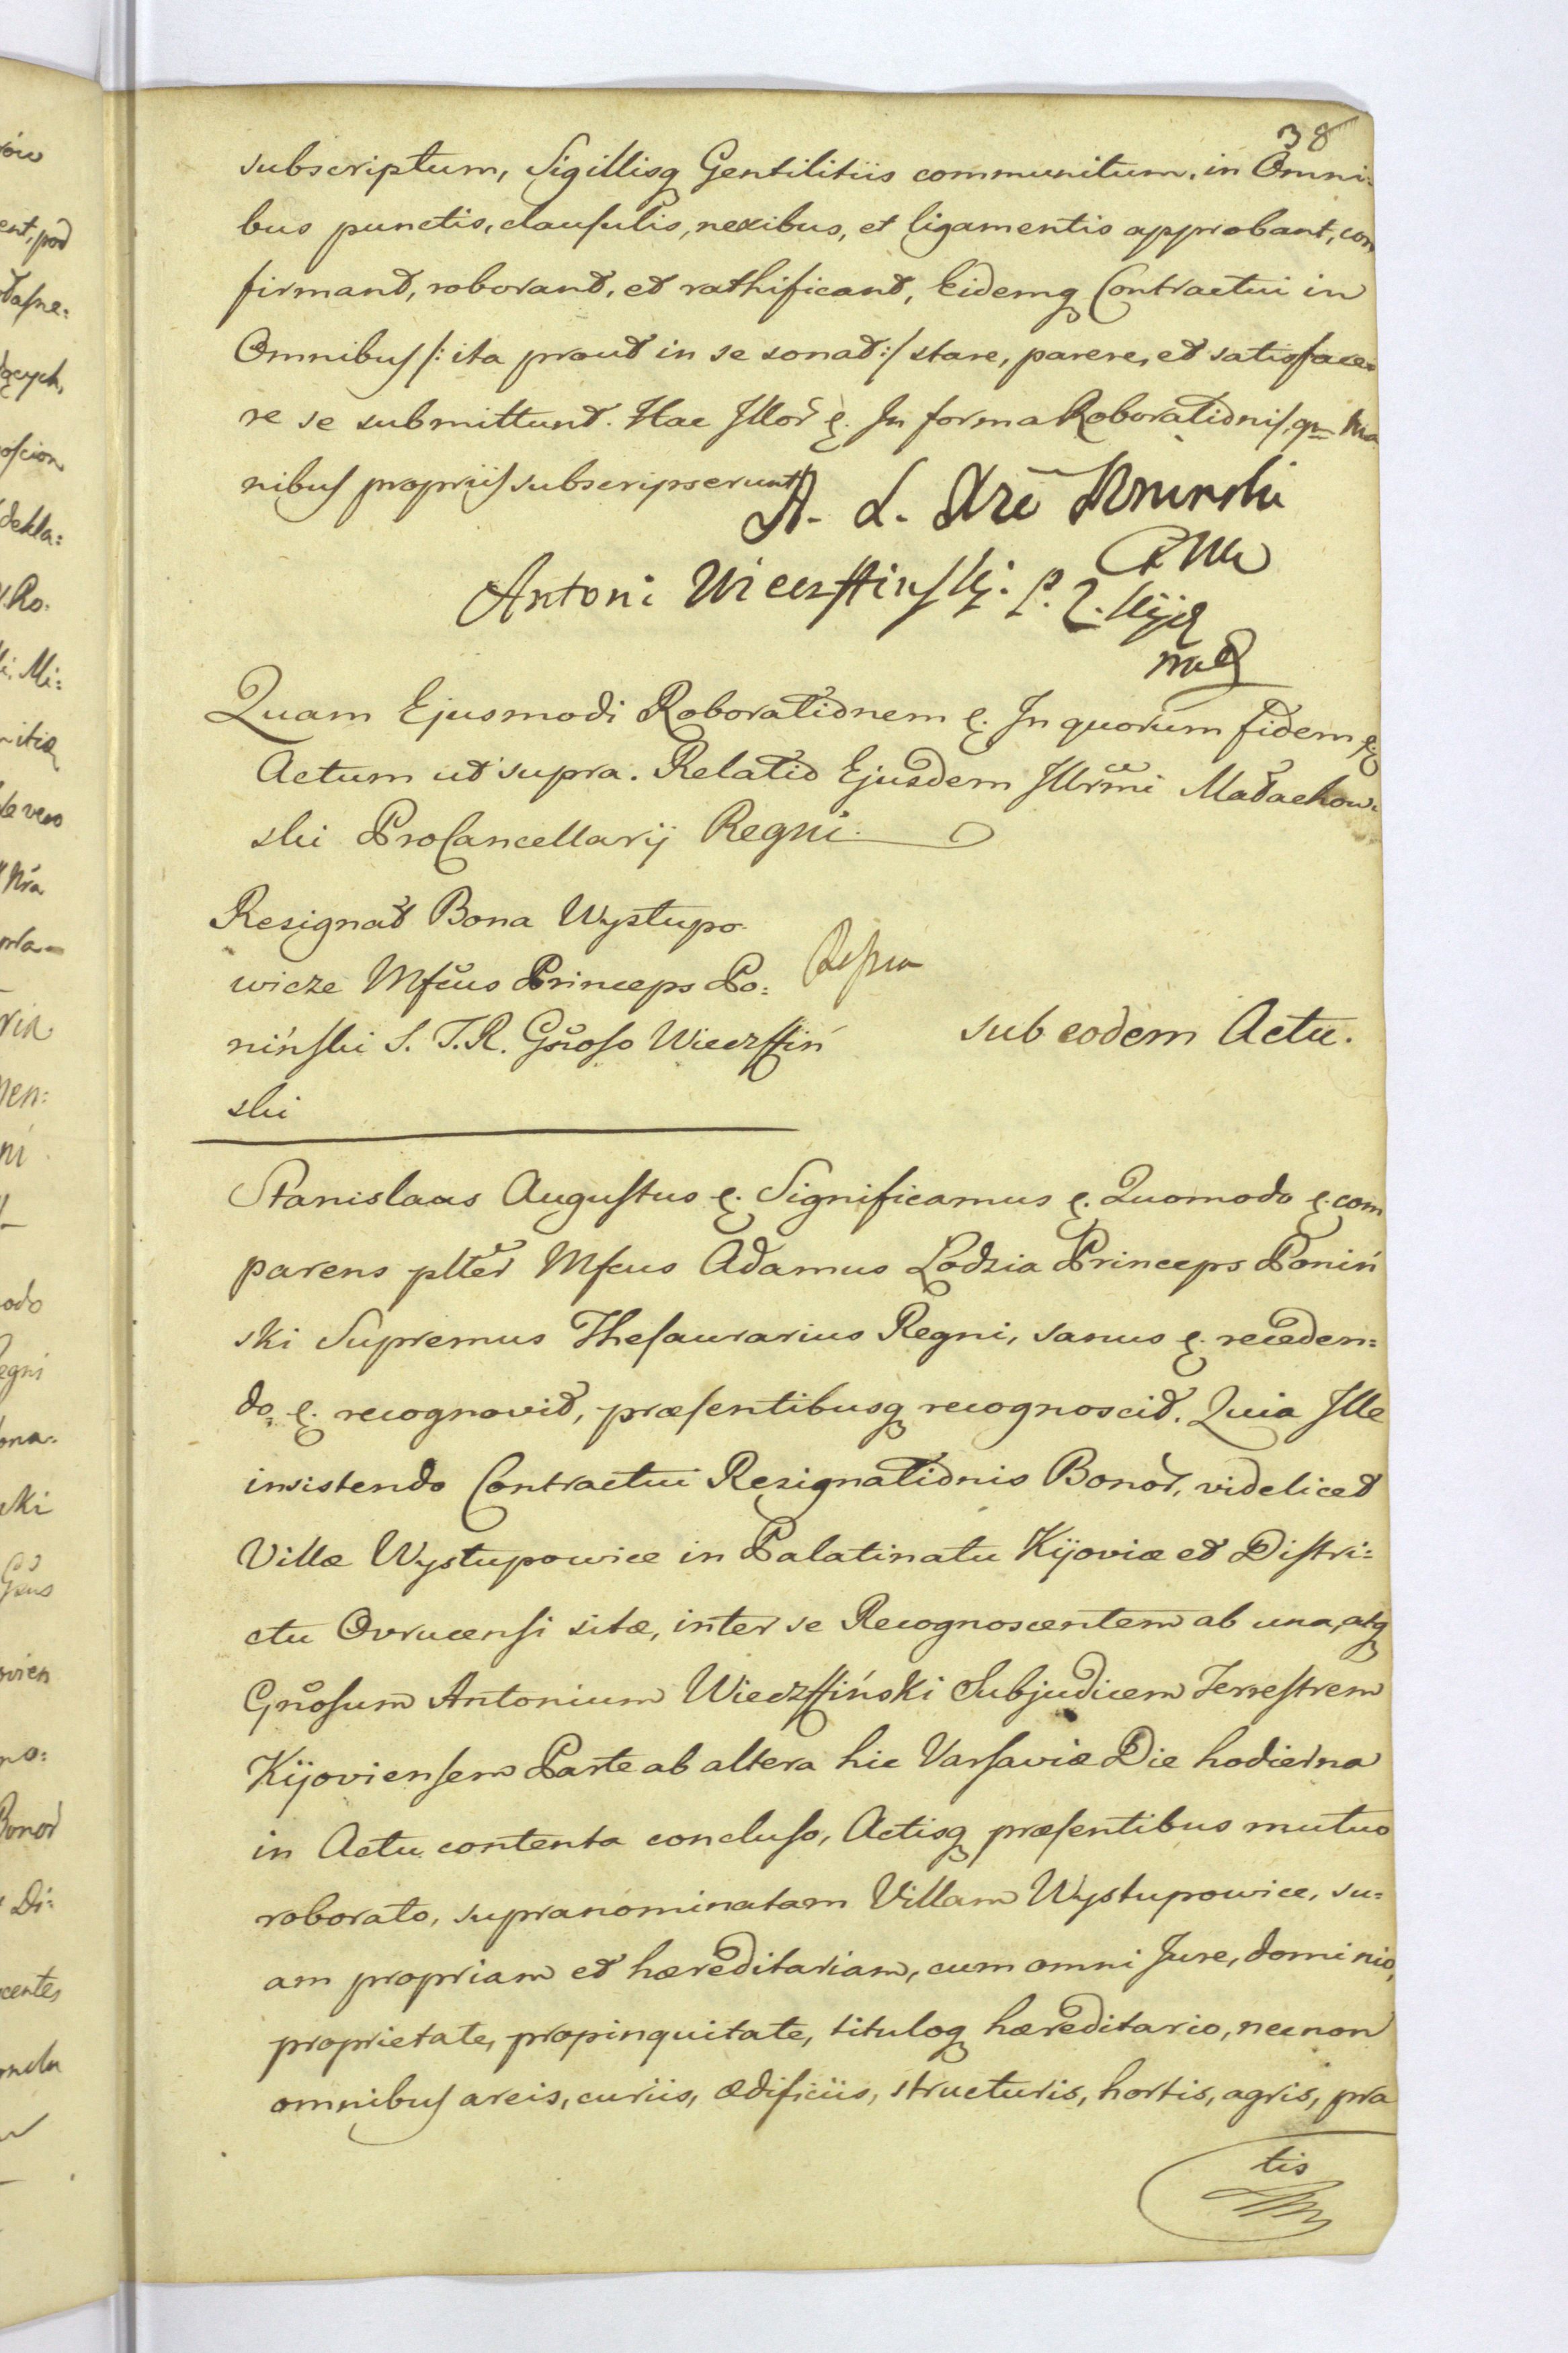 38
subscriptum, Sigillisq Gentilitiis communitum, in Omni:
bus punctis, clausulis, nexibus, et ligamentis approbant, con
firmant, roborant, et rathificant, Eidemq Contractui in
Omnibus /: ita prout in se sonat :/ stare, parere, et satisface=
re se submittunt. Hac Illor ę. In forma Roborationis, qm Ma
nibus propriis subscripserunt
A. L. Xże Poninski
Antoni Wieczffinski. P. Z. Kijo
mp
Quam Ejusmodi Roborationem ę. In quorum fidem ę.
Actum ut supra. Relatio Ejusdem Illrmi Małachow:
ski ProCancellarij Regni.
Resignat Bona Wystupo
wicze Mfcus Princeps Po:
niński S. T. R. Gnoso Wieczffiń
ski
sub eodem Actu.
Stanislaus Augustus ę. Significamus ę. Quomodo ę. com
parens plter Mfcus Adamus Lodzia Princeps Poniń
ski Supremus Thesaurarius Regni, sanus ę. receden=
do, ę. recognovit, præsentibusq recognoscit. Quia Ille
insistendo Contractui Resignationis Bonor, videlicet
Villæ Wystupowice in Palatinatu Kijoviæ et Distri=
ctu Ovrucensi sitæ, inter se Recognoscentem ab una, atq
Gnosum Antonium Wieczffiński Subjudicem Terrestrem
Kijoviensem Parte ab altera hic Varsaviæ Die hodierna
in Actu contenta concluso, Actisq præsentibus mutuo
roborato, supranominatam Villam Wystupowice, su=
am propriam et hæreditariam, cum omni Jure, dominio,
proprietate, propinquitate, tituloq hæreditario, necnon
omnibus areis, curiis, ædificiis, structuris, hortis, agris, pra
tis